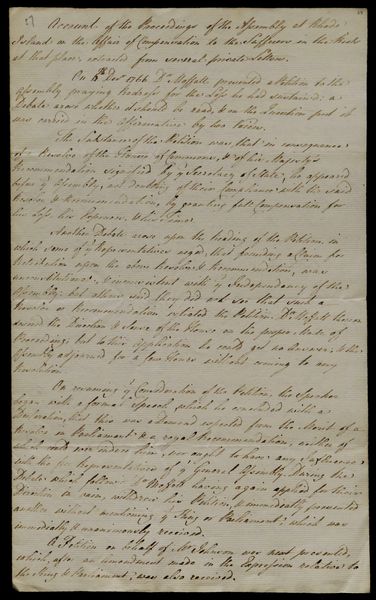 Account of the Proceedings of the Assembly at Rhode
Island in the Affair of Compensation to the Sufferers in the Riots
at that place, extracted from several private Letters.
On Decr 1766 Dr Moffatt presented a Petition to the
Assembly praying Redress for the Loss he had sustained: a
Debate arose whether it should be read, & on the Question put it
was carried in the Affirmative by two Voices.
The Substance of the Petition was, that in consequence
of a Resolve of the House of Commons, & of his Majesty's
Recommendation signified by ye Secretary of State, he appeared
before ye Assembly, not doubting of their compliance with the said
Resolve & Recommendation, by granting full Compensation for
his Loss, his Expences, & his Time.
Another Debate arose upon the heading of the Petition, in
which some of ye Representatives urged, that founding a Claim for
Restitution upon the above Resolve & Recommendation, was
unconstitutional, & inconsistent with ye Independency of the
Assembly: but others said they did not see that such a
Resolve or Recommendation vitiated the Petition. Dr Moffatt thereon
desired the Direction & Sense of the House on the proper Mode of
Proceeding; but to this application he could get no Answer, & the
Assembly adjourned for a few Hours without coming to any
Resolution.
On resuming ye Consideration of the Petition, the Speaker
began with a formal Speech, which he concluded with a
Declaration, that this was a demand separated from the Merit of a
Resolve in Parliament & a royal Recommendation, neither of
which could ever induce him, nor ought to have any Influence
with the free Representatives of ye General Assembly. During the
Debates which follow'd Dr Moffatt having again applied for their
Direction in vain, withdrew his Petition, & immediately presented
another without mentioning ye King or Parliament; which was
immediately & unanimously received.
A Petition on behalf of Mr Johnson was next presented,
which, after an amendment made in the Expression relative to
the King & Parliament, was also received.